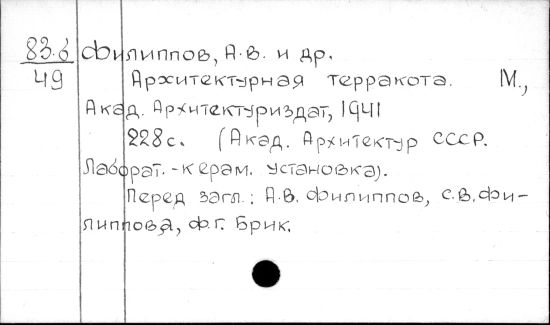 83.6 Филиппов, А.В. и др.
49 Архитектурная терракота. М.,
Акад. Архитектуриздат, 1941
228с. (Акад. Архитектур СССР.
Лаборат.-керам. установка).
Перед загл.: А.В. Филиппов, С.В. Фи-
липпова, Ф.Г. Брик.